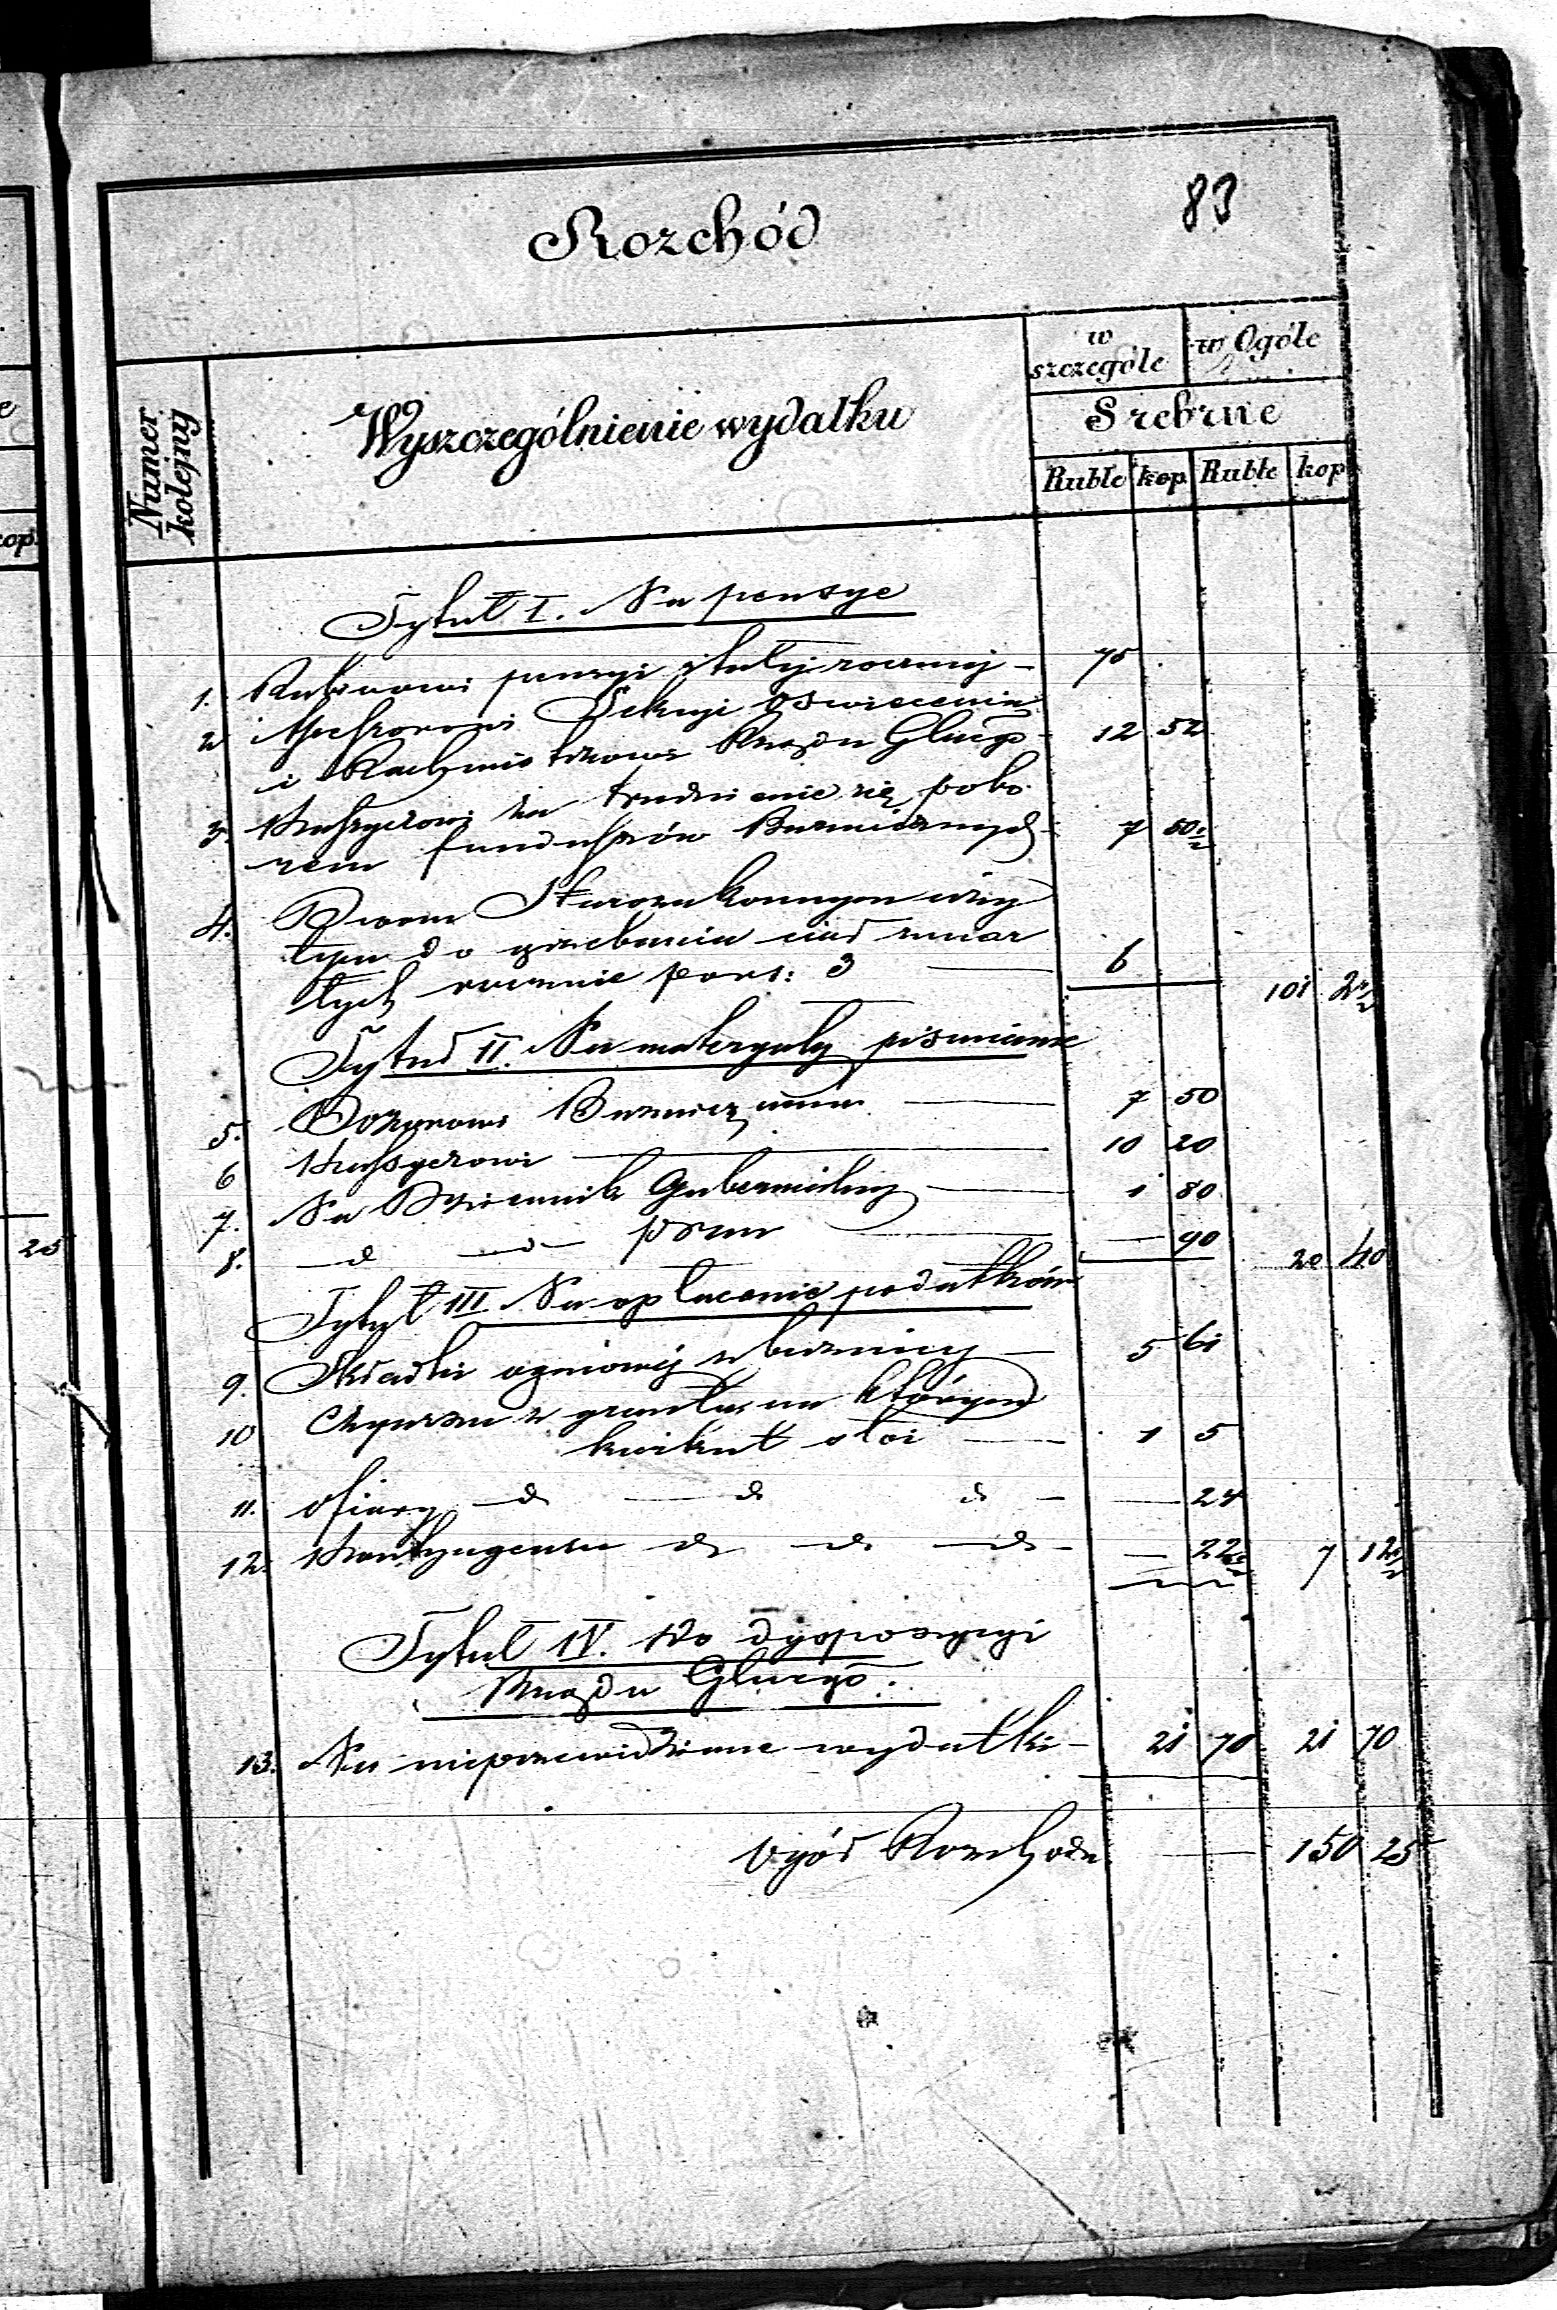 83
Rozchód
Numer kolejny
Wyszczególnienie wydatku
w szczególe
w Ogóle
Srebrne
Ruble kop Ruble kop
Tytuł I. Na pensye
1. Rabinowi pensyi stałej rocznej - 75
2 Assessorowi Sekcyi Oswiecenia
i Rachmistrzowi Rządu Głuego - 12 52
3. Kassyerowi za trudnienie się pobo
rem funduszów Boznicznych - 7 50 1/2
4. Dwom Starozakonnym uży
tym do grzebania ciał zmar
łych rocznie pors: 3 — 6
101 2 1/2
Tytuł II. Na materyały piśmienne
5. Dozorowi Bozniczemu — 7 50
6 Kassyerowi — 10 20
7. Na Dziennik Gubernialny — 1 80
8. — d — d — praw — 90
20 40
Tytuł III Na opłacenie podatków
9. Składki ogniowej z boznicy — 5 61
10 Czynszu z gruntu na którym
kwikut stoi — 1 5
11. Ofiary — d — d d — 24
12. Kontyngensu d — d — d — 22 1/2
7 12 1/2
Tytuł IV. Do dyspozycyi
Rządu Głuego.
13. Na nieprzewidziane wydatki — 21 70 21 70
Ogół Rozchodu — 150 25
kop.
25